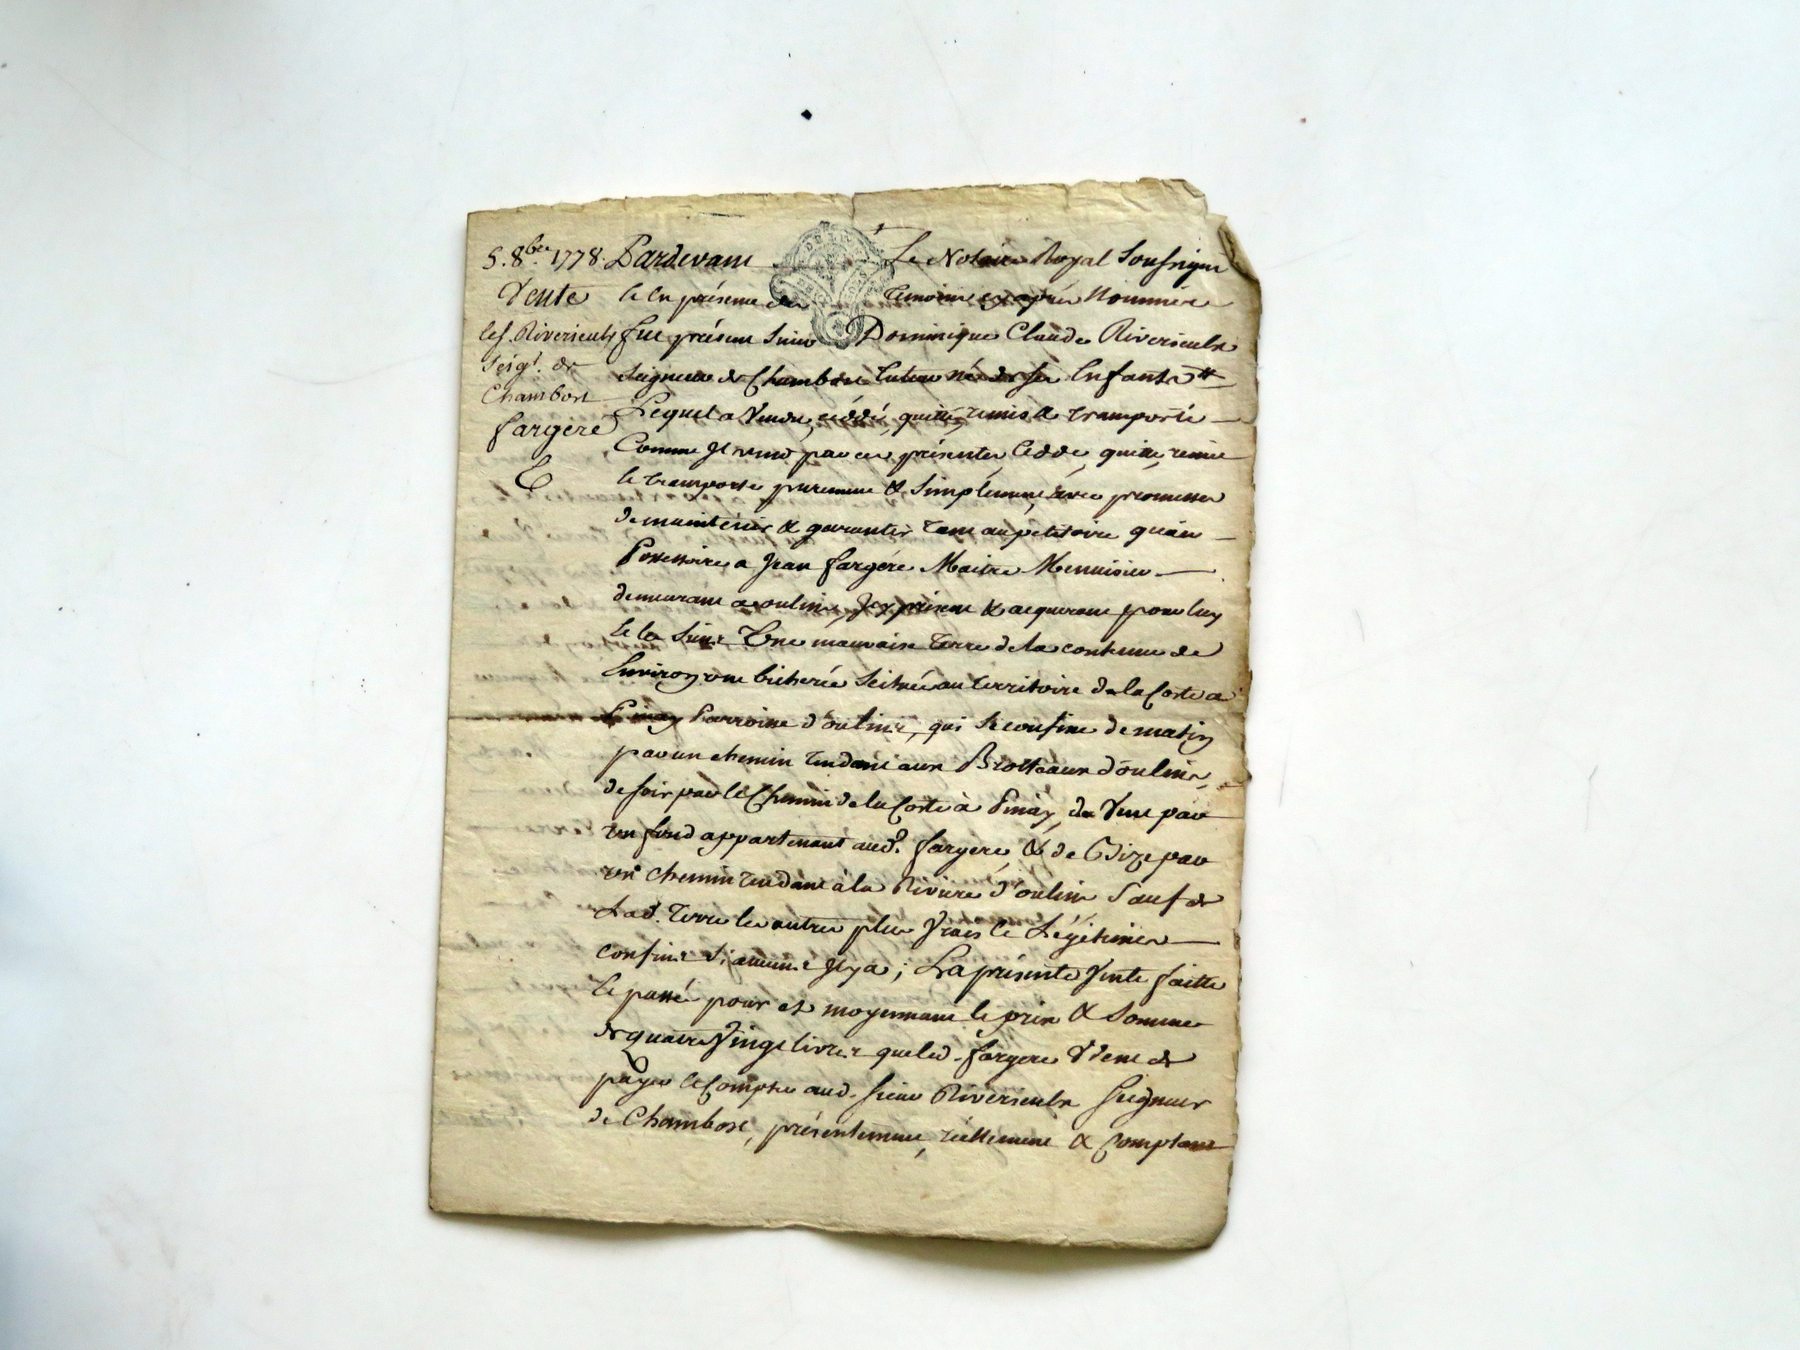 5. 8bre 1778.
Vente
les. Riverieulx
Seigr. de
Chambost
fargere
Pardevant Le Notaire Royal Soussigné
et en présence des temoins cy après Nommés
fut présent Sieur Dominique Claude Riverieulx
Seigneur de Chambost tuteur né de ses Enfants
Lequel a Vendu, cèddé, quitté, remis & transporté
Comme Il vend par ces présentes, cedde, quitte, remet
et transporte purement & Simplement, avec promesse
de maintenir & garantir tant au petitoire qu'au
Possessoire a Jean fargére Maitre Menuisier
demeurant a oulins, Icy présent & acquerant pour luy
et les Siens Une mauvaise terre de la contenue de
Environ une bicherée Scituée au territoire de la Coste a
Pinay Parroisse d'oulins, qui se confine de matin
par un chemin tendant aux Brotteaux d'oulins,
de soir par le Chemin de la Coste à Pinay, du Vent par
un fond appartenant aud. fargere, & de Bize par
un chemin tendant à la Riviere d'oulins Sauf de
Lad. terre les autres plus Vrais et Légitimes
confins Si aucuns Il y a ; La présente Vente faitte
et passé pour et moyennant le prix & Somme
de quatre Vingt livres que led. fargere Vient de
payer et Compter aud. Sieur Riverieulx Seigneur
de Chambost, présentement, réellement & Comptant